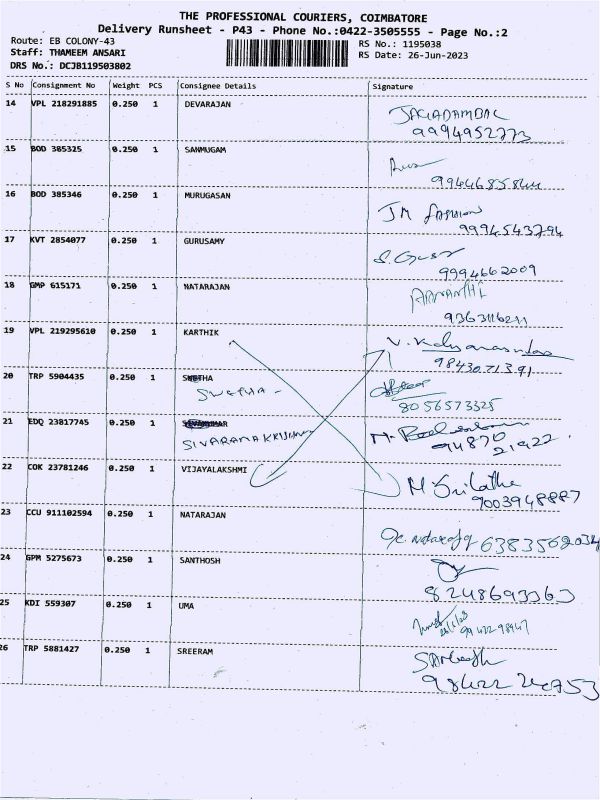 THE PROFESSIONAL COURIERS, COIMBATORE
Delivery Runsheet - P43 - Phone No.:0422-3505555 - Page No.:2
Route: EB COLONY-43
RS No.: 1195038
Staff: THAMEEM ANSARI
RS Date: 26-Jun-2023
DRS No.: DCJB119503802
S No Consignment No Weight PCS Consignee Details Signature
14 VPL 218291885 0.250 1 DEVARAJAN JAGADAMBAL
9994952773
15 BOD 385325 0.250 1 SANMUGAM
16 BOD 385346 0.250 1 MURUGASAN JM
9994543794
17 KVT 2854077 0.250 1 GURUSAMY
9994662009
18 GMP 615171 0.250 1 NATARAJAN
9363116211
19 VPL 219295610 0.250 1 KARTHIK
9843071391
20 TRP 5904435 0.250 1
SWETHA -
8056573325
21 EDQ 23817745 0.250 1
SIVARAMAKRISHNAN
94870
21922
22 COK 23781246 0.250 1 VIJAYALAKSHMI M Srilatha
9003948887
23 CCU 911102594 0.250 1 NATARAJAN
6383562034
24 GPM 5275673 0.250 1 SANTHOSH
8248693363
25 KDI 559307 0.250 1 UMA
99422 98947
26 TRP 5881427 0.250 1 SREERAM